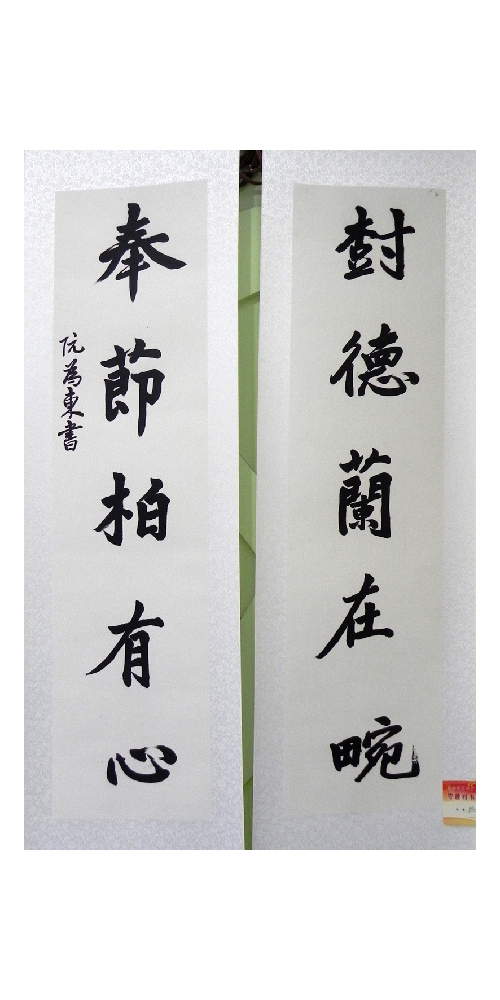 封德蘭在畹
奉節柏有心
阮為東書